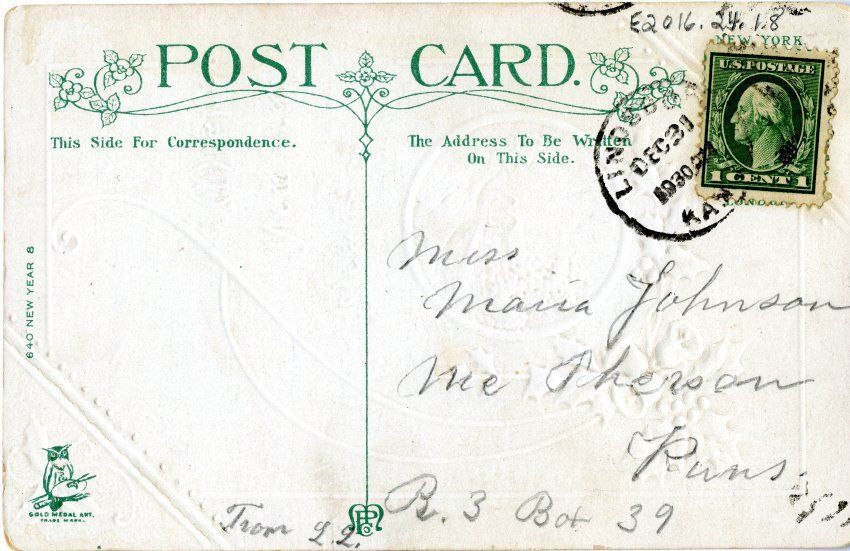 E2016.24.18
NEW YORK
POST CARD.
U.S. POSTAGE
1 CENT 1
This Side For Correspondence.
The Address To Be Written
On This Side.
LINDSBORG
DEC 31
KAN.
640 NEW YEAR 8
Miss
Maria Johnson
Mc Pherson
Kans.
R. 3 Box 39
From L.L.
GOLD MEDAL ART.
TRADE MARK.